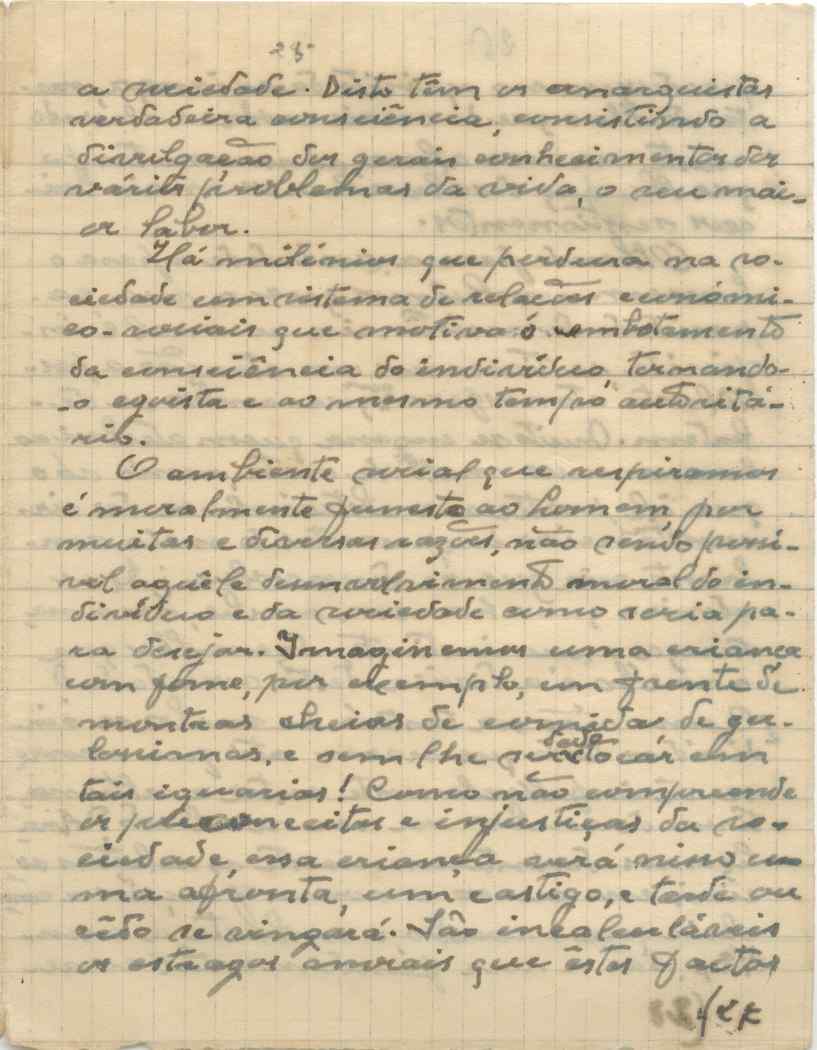 28
a sociedade. Disto têm os anarquistas
verdadeira consciência, consistindo a
divulgação dos gerais conhecimentos dos
vários problemas da vida, o seu mai-
or labor.
Há milénios que perdura na so-
ciedade um sistema de relações económi-
co-sociais que motiva o embotamento
da consciência do indivíduo tornando-
-o egoista e ao mesmo tempo autoritá-
rio.
O ambiente social que respiramos
é moralmente funesto ao homem por
muitas e diversas razões, não sendo possi-
vel aquêle desenvolvimento moral do in-
divíduo e da sociedade como seria pa-
ra desejar. Imaginemos uma criança
com fome, por exemplo, em frente de
montras cheias de comida de gu-
loseimas, e sem lhe ser dado tocár em
tais iguarias! Como não compreende
os preconceitos e injustiças da so-
ciedade, essa criança verá nisso u-
ma afronta, um castigo, e tarde ou
cêdo se vingará. São incalculáveis
os estragos morais que êstes factos